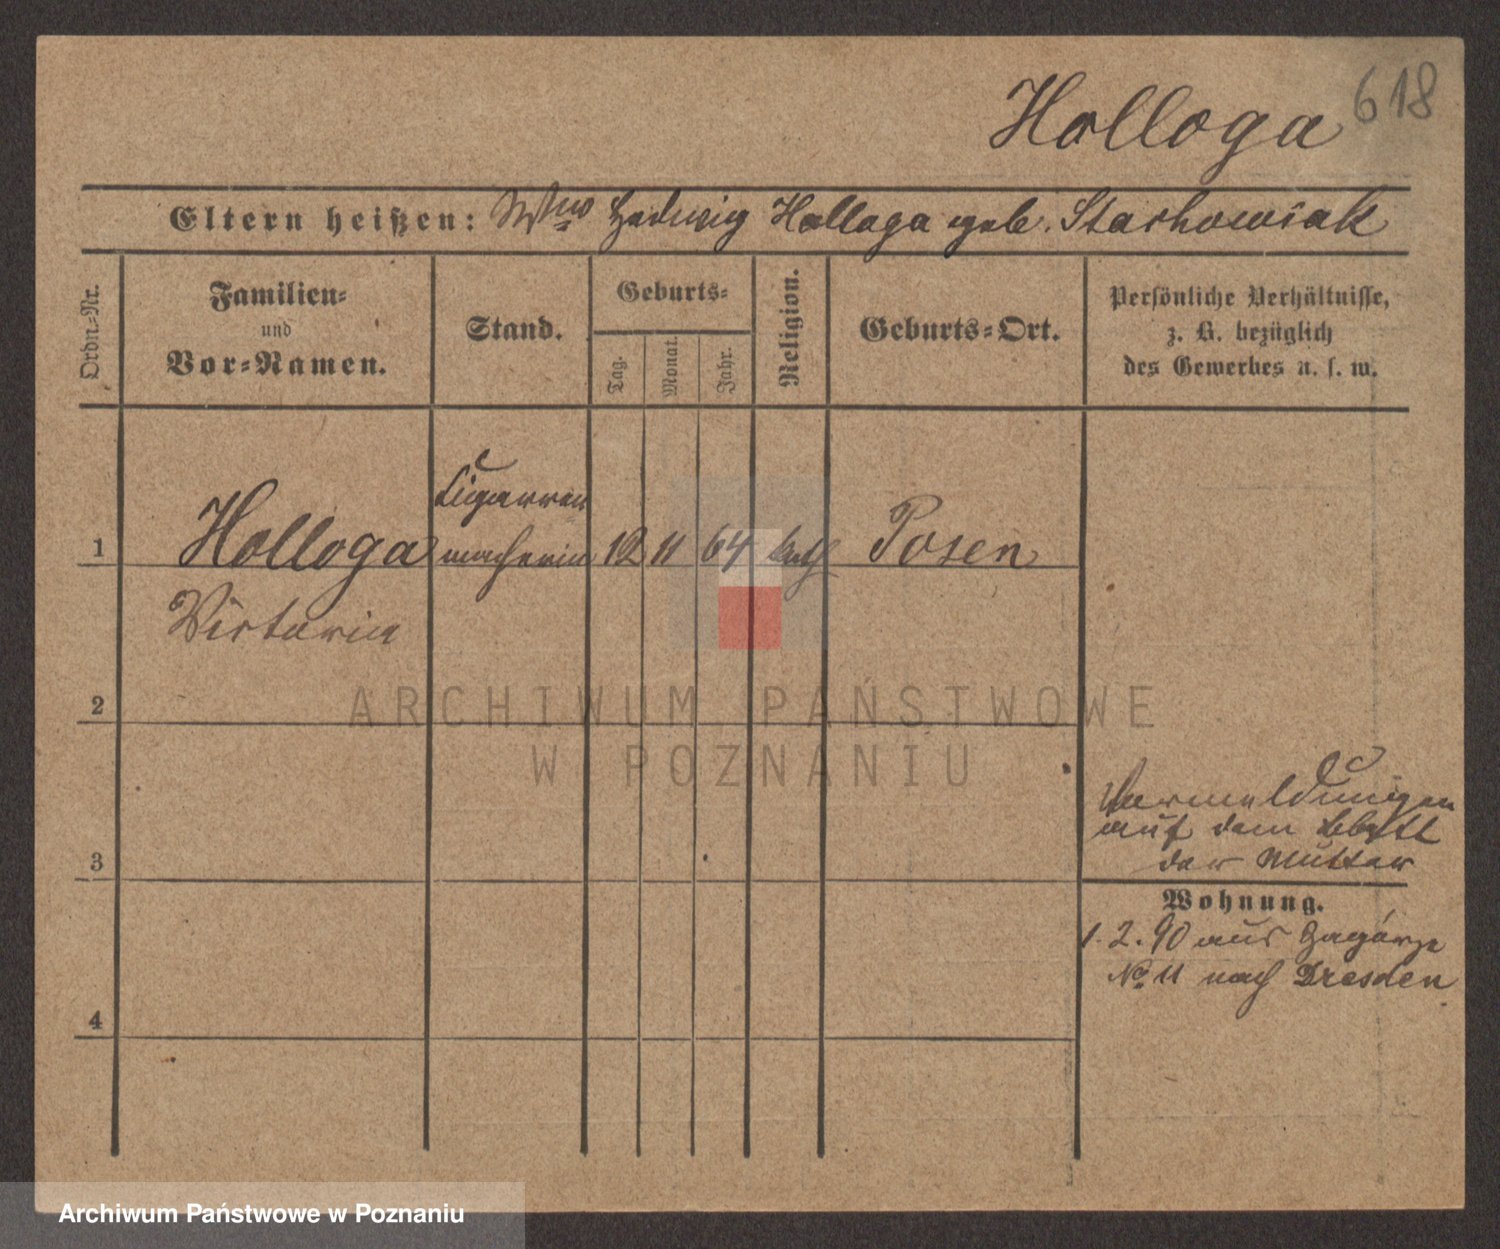 Holloga 618
Eltern heißen: Wwe Hedwig Holloga geb. Stachowiak
Ordn.-Nr.
Familien-
und
Vor-Namen.
Stand.
Geburts-
Tag.
Monat.
Jahr.
Religion.
Geburts-Ort.
Persönliche Verhältnisse,
z. B. bezüglich
des Gewerbes u. s. w.
Cigarren
1 Holloga macherin 12 11 64 kath Posen
Victoria
2
ARCHIWUM PAŃSTWOWE
W POZNANIU
Vermeldungen
auf dem Blatt
3 der Mutter
Wohnung.
1. 2. 90 aus Zagórze
No 11 nach Dresden
4
Archiwum Państwowe w Poznaniu